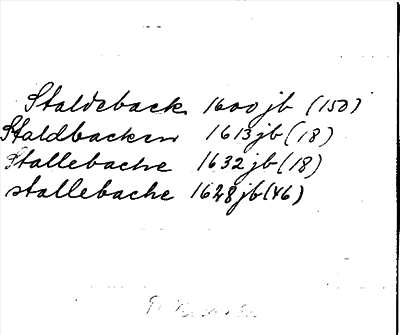 Staldeback 1600 jb (150)
Staldbacken 1613 jb (18)
Stallebache 1632 jb (18)
stallebache 1648 jb (46)